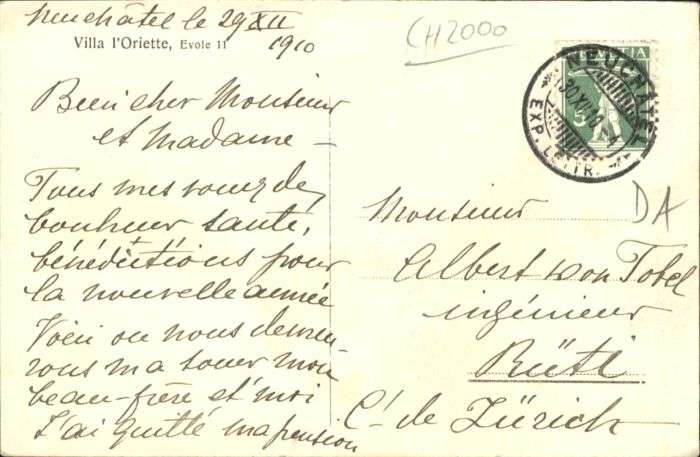 Neuchâtel le 29 XII
1910
Villa l'Oriette, Evole 11
Bien cher Monsieur
et Madame —
Tous mes voeux de
bonheur santé,
bénédictions pour
la nouvelle année
Voici où nous demeu-
rons ma soeur mon
beau-frère et moi
J'ai quitté ma pension
CH2000
HELVETIA
5
NEUCHÂTEL
30.XII.10
EXP. LETTR.
DA
Monsieur
Albert von Tobel
ingénieur
Rüti
Ct. de Zürich